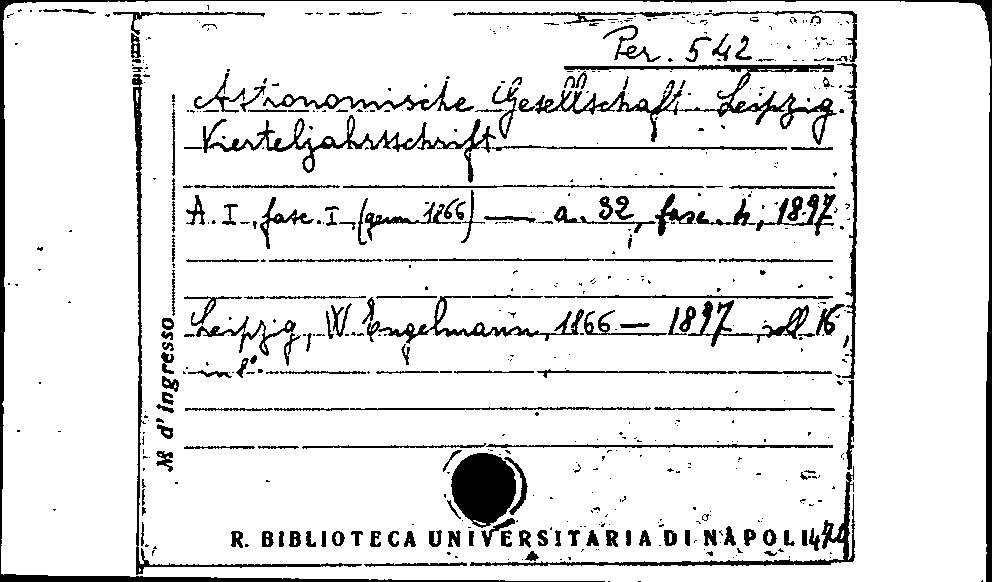 Per. 542
Astronomische Gesellschaft. Leipzig.
Vierteljahrsschrift.
A. I, fasc. I (genn. 1866) — a. 32, fasc. 4, 1897.
Leipzig, W. Engelmann, 1866 — 1897, voll 16,
in 8°.
N d'ingresso
R. BIBLIOTECA UNIVERSITARIA DI NAPOLI